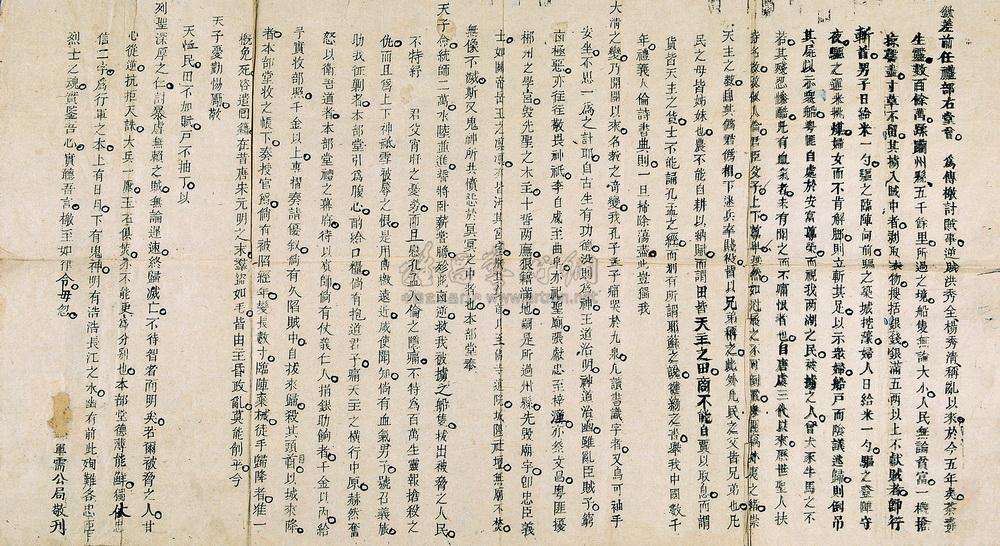 欽差前任禮部右堂曾　為傳檄討賊事逆賊洪秀全楊秀清稱亂以來於今五年矣荼毒
生靈數百餘萬蹂躪州縣五千餘里所過之境船隻無論大小人民無論貧富一概搶
掠罄盡寸草不留其擄入賊中者剝取衣物搜括銀錢銀滿五兩以上不獻賊者即行
斬首男子日給米一勺驅之臨陣向前驅之築城挖濠婦人日給米一勺驅之登陴守
夜驅之運米挑煤婦女而不肯解腳則立斬其足以示衆婦船戶而陰謀逃歸則倒吊
其屍以示衆船粵匪自處於安富尊榮而視我兩湖之民被擄之人曾犬豕牛馬之不
若其殘忍慘酷凡有血氣者未有聞之而不痛恨者也自唐虞三代以來歷世聖人扶
持名教敦敍人倫君臣父子上下尊卑秩然如冠履之不可倒置粵匪竊外夷之緒崇
天主之教自其僞君僞相下逮兵卒賤役皆以兄弟稱之此外凡民之父皆兄弟也凡
民之母皆姊妹也農不能自耕以納賦而謂田皆天主之田商不能自賈以取息而謂
貨皆天主之貨士不能誦孔孟之經而別有所謂耶蘇之說雜糅之書舉我中國數千
年禮義人倫詩書典則一旦掃除蕩盡此豈獨我
大清之變乃開闢以來名教之奇變我孔子孟子痛哭於九泉凡讀書識字者又烏可袖手
安坐不思一為之計耶自古生有功德沒則為神王道治明神道治幽雖亂臣賊子窮
凶極惡亦往往敬畏神祇李自成至曲阜不犯聖廟張獻忠至梓潼亦祭文昌粵匪
郴州之學宮毀先聖之木主十哲兩廡狼籍滿地嗣是所過州縣先毀廟宇即忠臣義
士如關帝岳王之凜凜亦污其宮室殘其身首以至佛寺道院城隍社壇無廟不焚
無像不滅斯又鬼神所共憤恚於冥冥之中者也本部堂奉
天子命統師二萬水陸並進誓將臥薪嘗膽殄此凶逆救我被擄之船隻拔出被脅之人民
不特紓　君父宵旰之憂勞而且慰孔孟人倫之隱痛不特為百萬生靈報搶殺之
仇而且為上下神祇雪被辱之恨是用傳檄遠近咸使聞知倘有血氣男子號召義旅
助我征剿者本部堂引為腹心酌給口糧倘有抱道君子痛天主之橫行中原赫然奮
怒以衛吾道者本部堂禮之幕府待以賓師倘有仗義仁人捐銀助餉者千金以內給
予實收部照千金以上專摺奏請優敍倘有久陷賊中自拔來歸殺其頭目以城來降
者本部堂收之帳下奏授官爵倘有被脅經年髮長數寸臨陣棄械徒手歸降者准一
概免死資遣回籍在昔唐宋元明之末羣盜如毛皆由主昏政亂莫能剷平今
天子憂勤惕厲敬
天恤民田不加賦戶不抽丁以
列聖深厚之仁討暴虐無賴之賊無論遲速終歸滅亡不待智者而明矣若爾被脅之人甘
心從逆抗拒天誅大兵一壓玉石俱焚亦不能更為分別也本部堂德薄能鮮獨仗忠
信二字為行軍之本上有日月下有鬼神明有浩浩長江之水幽有前此殉難各忠臣
烈士之魂實鑒吾心實聽吾言檄至如律令毋忽
軍需公局敬刊